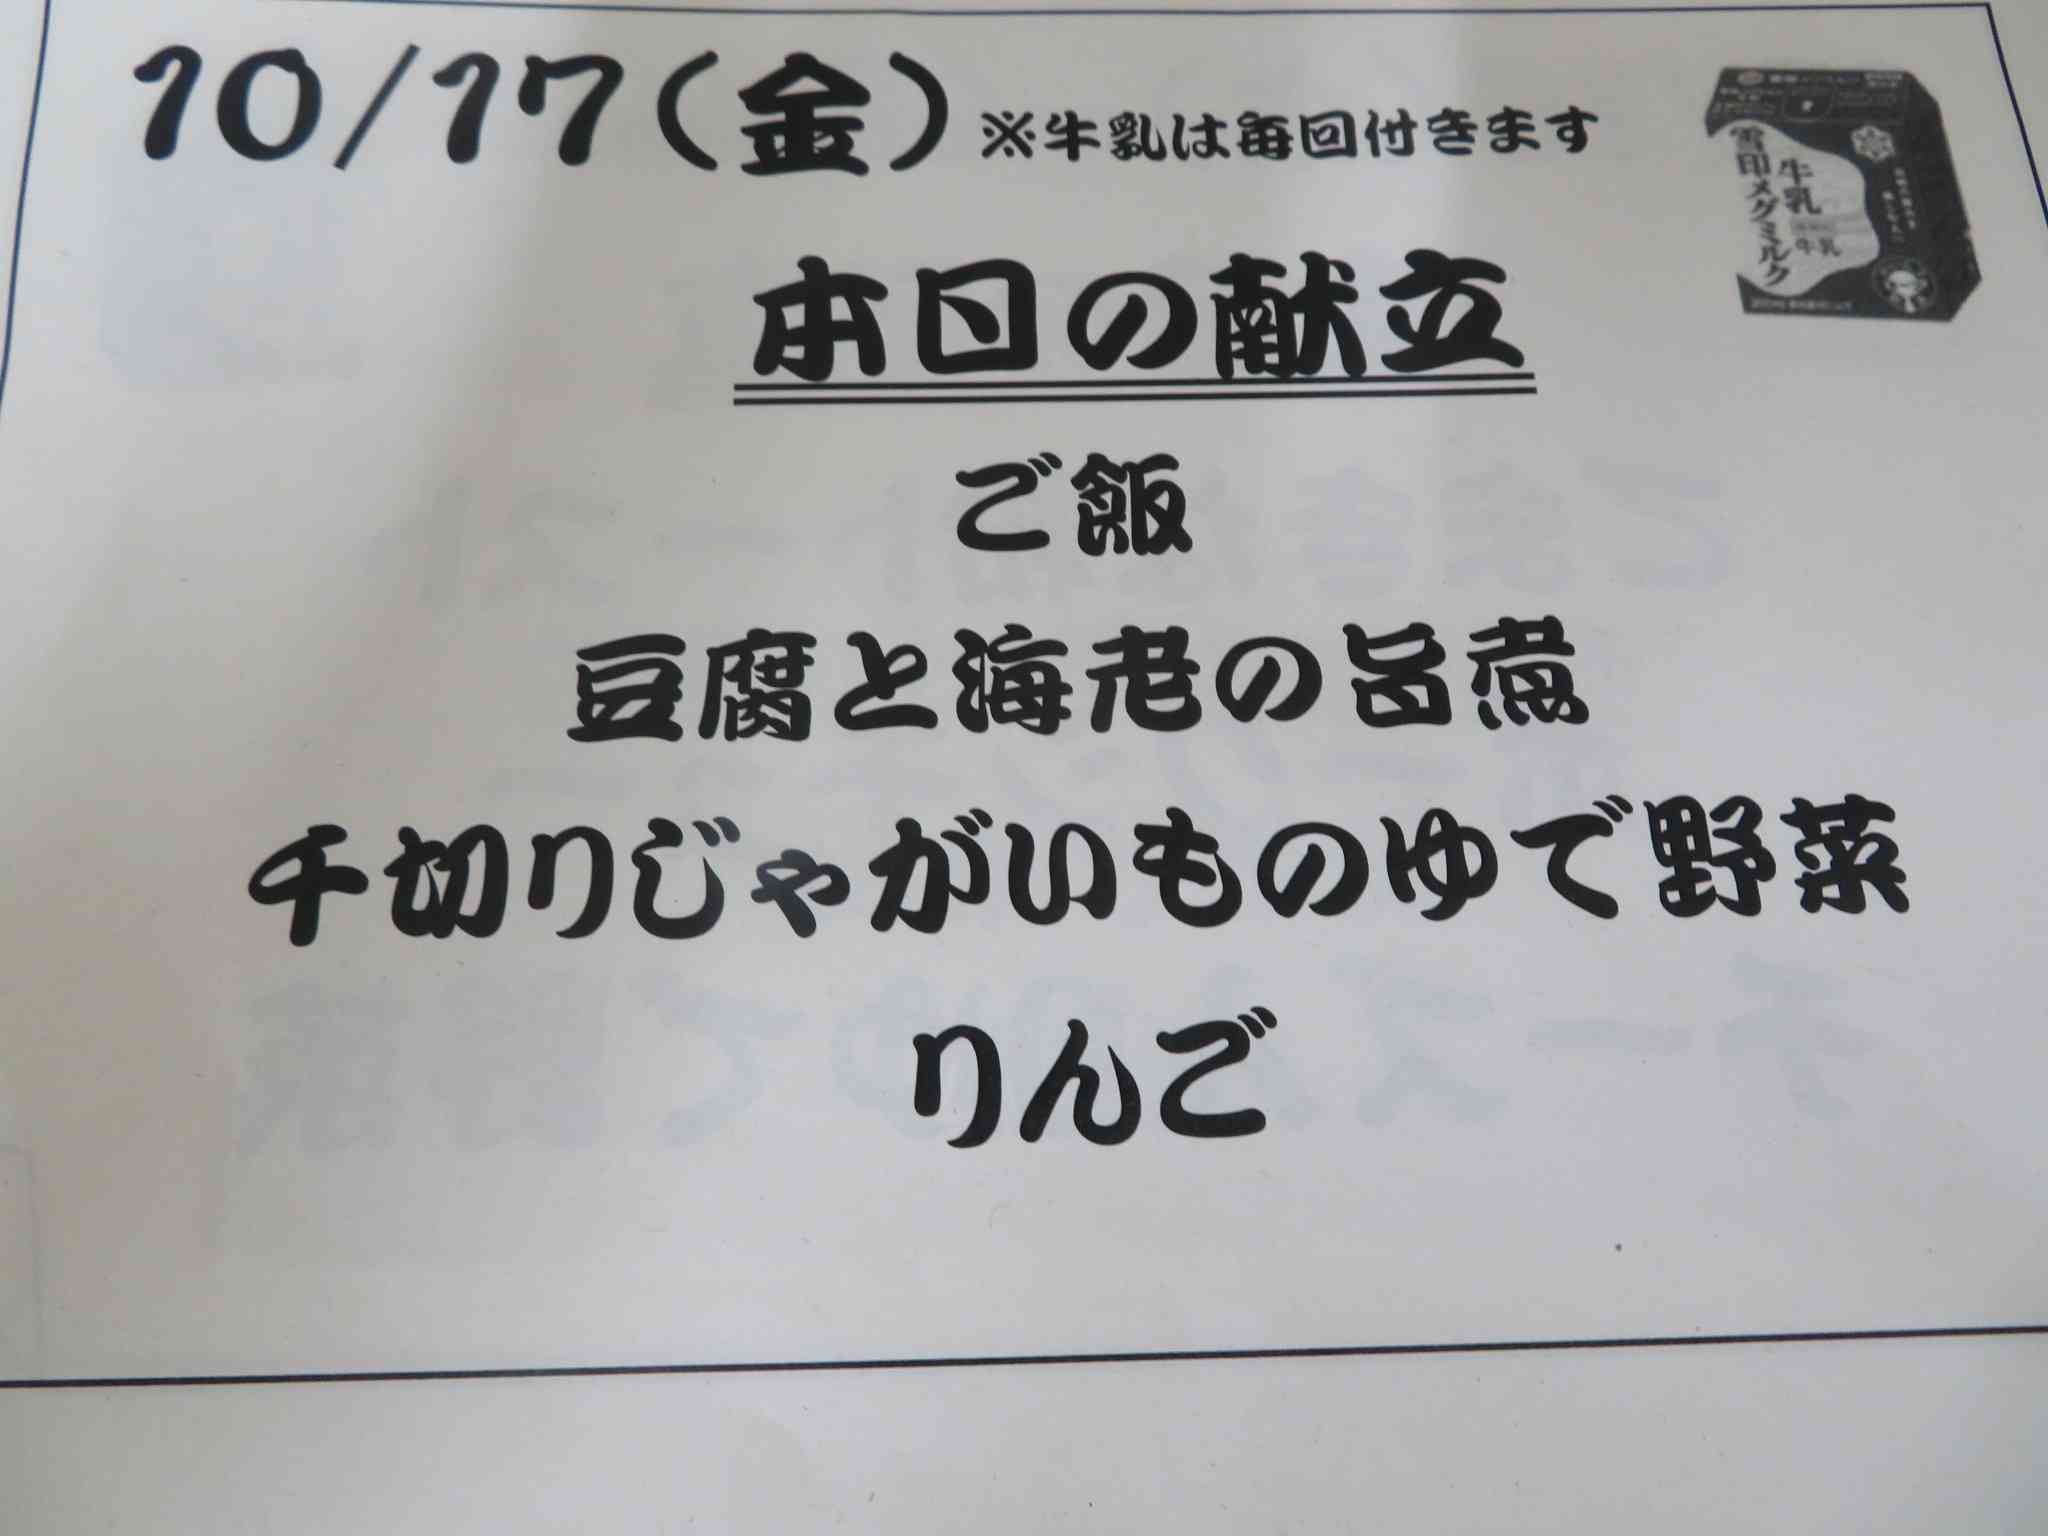 10/17(金) ※牛乳は毎回付きます
雪印メグミルク
牛乳
本日の献立
ご飯
豆腐と海老の旨煮
千切りじゃがいものゆで野菜
りんご